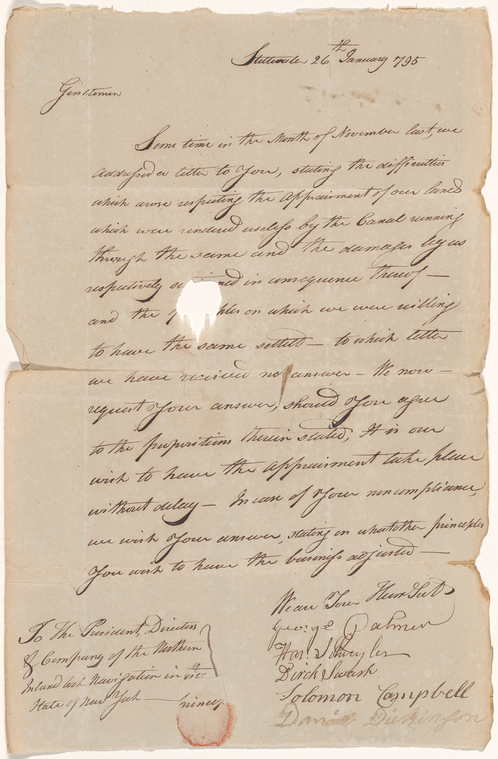 Stillwater 26th January 1795
Gentlemen
Some time in the Month of November last, we
addressed a letter to Your, stating the difficulties
which arose respecting the appraisment of our lands
which were rendered useless by the Canal running
through the same and the damages by us
respectively su ined in consequence thereof —
and the p ples on which we were willing
to have the same settled — to which letter
we have received no answer — We now —
request Your answer, should You agree
to the propositions therein stated, It is our
wish to have the appraisment take place
without delay — In case of Your noncompliance,
we wish Your answer, stating on whatother principles
You wish to have the business adjusted —
We are Your Hum Sert
George Palmer
Har. Schuyler
Dirck Swart
Solomon Campbell
Daniel Dickinson
To The President, Directors
& Company of the Northern
Inland lock Navigation in the
State of New York —